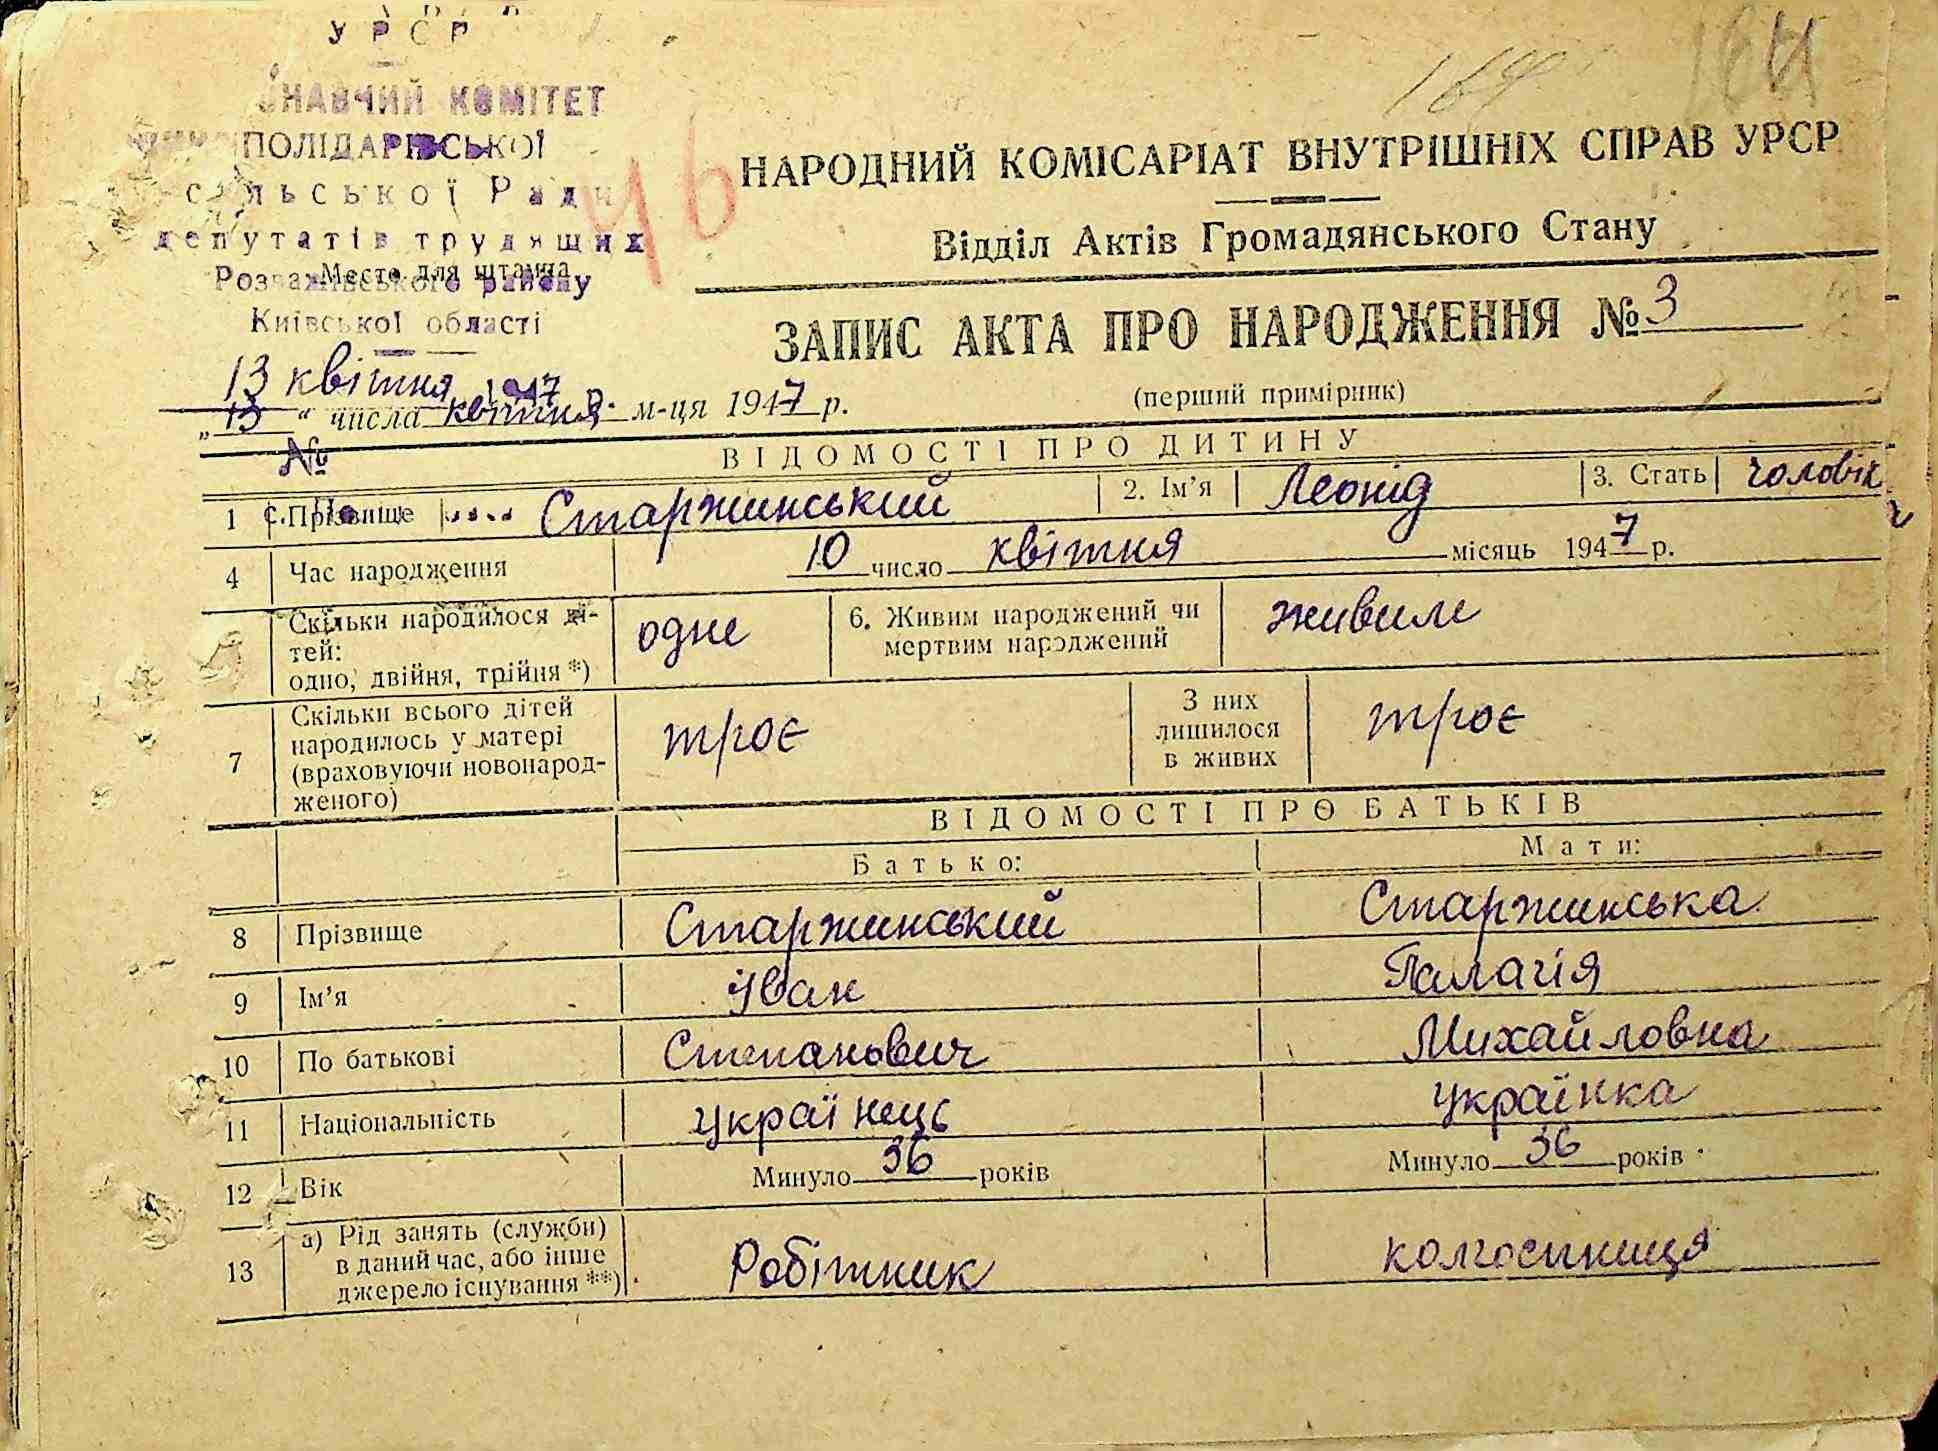 УРСР
НАВЧИЙ КОМІТЕТ
ПОЛІДАРІВСЬКОЇ
сільської Ради
депутатів трудящих
Место для штампа
Розважівського району
Київської області
13 квітня 1947 р.
„13“ числа квітня м-ця 1947 р.
№
164
46
НАРОДНИЙ КОМІСАРІАТ ВНУТРІШНІХ СПРАВ УРСР
Відділ Актів Громадянського Стану
ЗАПИС АКТА ПРО НАРОДЖЕННЯ № 3
(перший примірник)
ВІДОМОСТІ ПРО ДИТИНУ
1 Прізвище Старжинський 2. Ім’я Леонід 3. Стать чоловіч
4 Час народження 10 число квітня місяць 1947 р.
Скільки народилося ді-
тей:
одно, двійня, трійня *) одне 6. Живим народжений чи
мертвим народжений живим
7 Скільки всього дітей
народилось у матері
(враховуючи новонарод-
женого) троє З них
лишилося
в живих троє
ВІДОМОСТІ ПРО БАТЬКІВ
Батько: Мати:
8 Прізвище Старжинський Старжинська
9 Ім’я Іван Палагія
10 По батькові Степанович Михайловна
11 Національність українець українка
12 Вік Минуло 36 років Минуло 36 років
13 а) Рід занять (служби)
в даний час, або інше
джерело існування **) Робітник колгоспниця